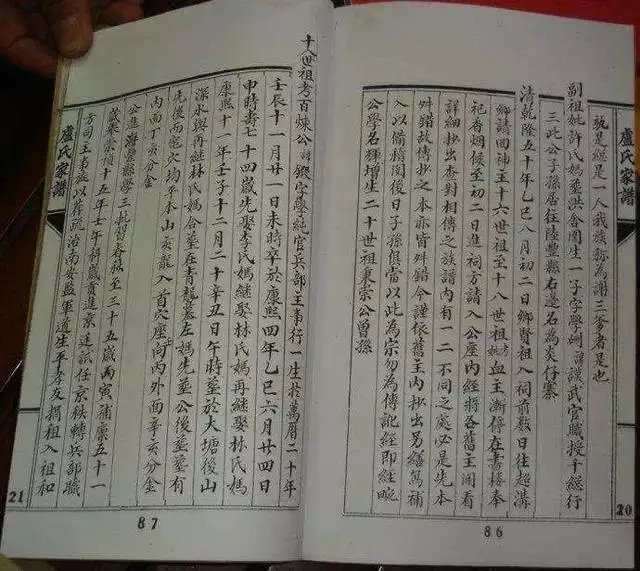 盧氏家譜
孰是總是一人我族称為謝三爹者是也
副祖妣許氏媽墓洪舍圍生一子字學姍諱護武官職授千總行
三此公子孫居住陸豐縣右邊名為炎仔寨
清乾隆五十年乙巳八月初二日鄉賢祖入祠前数日往起溝
鄉請回神主十六世祖至十八世祖妣考血主漸停在書樓奉
祀香烟候至初二日進祠方請入公座內經將各舊主開看
詳細抄出查對相傳之族譜內有一二不同之處必是先本
舛錯故傳抄之本亦皆舛錯今謹依舊主內抄出另繕篤補
入以備稽閱後日子孫俱當以此為宗勿為傳訛經即經畹
公學名獬增生二十世祖秉崇公曾孫
20
86
十八世祖考百煉公諱鍛字學純官兵部主事行一生於萬曆二十年
壬辰十一月廿一日未時卒於康熙四年乙巳六月廿四日
申時壽七十四歲先娶李氏媽继娶林氏媽再继娶林氏媽
康熙十一年壬子十二月二十日辛丑日午時葬於大塘後山
深水與再继林氏媽合墓在青龍墓左媽先墓公後墓墓有
先後而窀穴均平本山亥龍入首穴座向丙內外面辛亥分金
內面丁亥分金
公進海豐縣學三批習春秋至三十五歲丙寅補廩五十一
歲崇禎十五年壬午科歲貢進京廷試任京秩轉兵部職
方司主事處以荐疏治南安監軍道生平孝友捐租入祖和
盧氏家譜
21
87